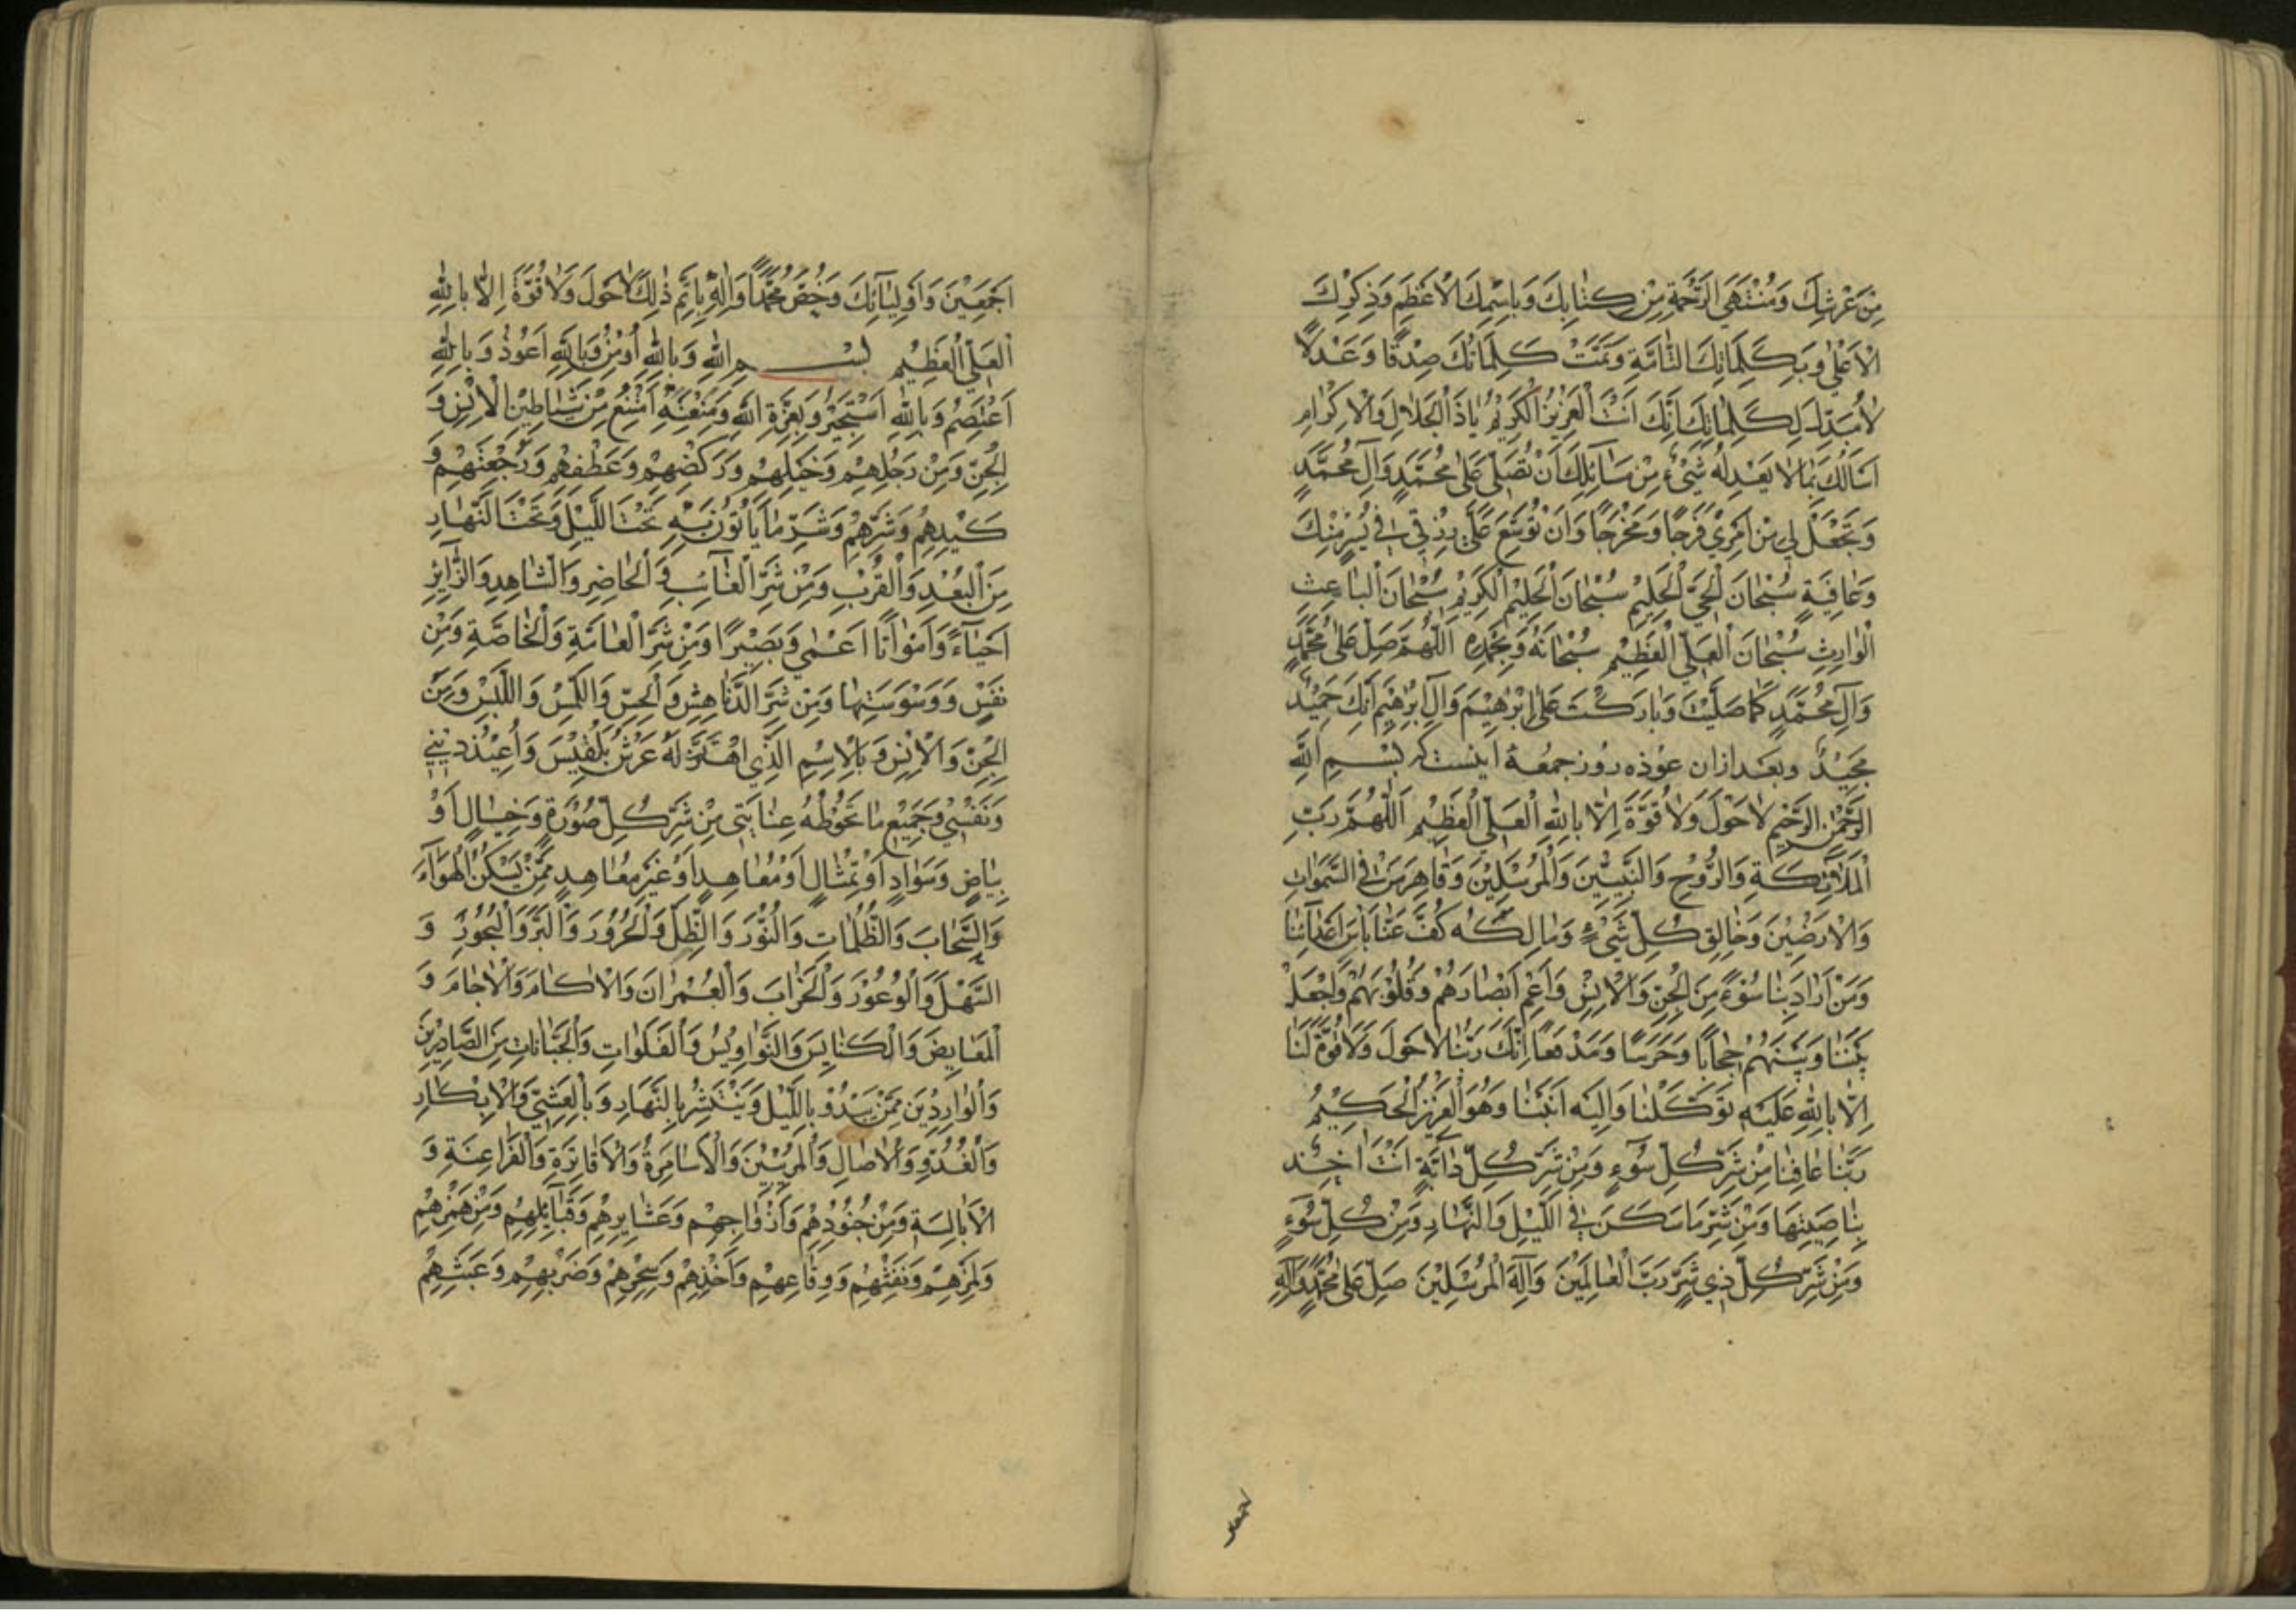 مِنْ عَرْشِكَ وَمُنْتَهَى الرَّحْمَةِ مِنْ كِتَابِكَ وَبِاسْمِكَ الْاَعْظَمِ وَذِكْرِكَ
الْاَعْلٰى وَبِكَلِمَاتِكَ التَّامَّةِ وَتَمَّتْ كَلِمَاتُكَ صِدْقًا وَعَدْلًا
لَا مُبَدِّلَ لِكَلِمَاتِكَ اِنَّكَ اَنْتَ الْعَزِيزُ الْكَرِيْمُ يَا ذَا الْجَلَالِ وَالْاِكْرَامِ
اَسْاَلُكَ بِمَا لَا يَعْدِلُهُ شَيْءٌ مِنْ مَسَائِلِكَ اَنْ تُصَلِّيَ عَلٰى مُحَمَّدٍ وَآلِ مُحَمَّدٍ
وَتَجْعَلْ لِي مِنْ اَمْرِي فَرَجًا وَمَخْرَجًا وَاَنْ تُوَسِّعَ عَلَيَّ رِزْقِي فِي يُسْرٍ مِنْكَ
وَعَافِيَةٍ سُبْحَانَ الْحَيِّ الْحَلِيْمِ سُبْحَانَ الْحَلِيْمِ الْكَرِيْمِ سُبْحَانَ الْبَاعِثِ
الْوَارِثِ سُبْحَانَ الْعَلِيِّ الْعَظِيْمِ سُبْحَانَهُ وَبِحَمْدِهِ اَللّٰهُمَّ صَلِّ عَلٰى مُحَمَّدٍ
وَآلِ مُحَمَّدٍ كَمَا صَلَّيْتَ وَبَارَكْتَ عَلٰى اِبْرٰهِيْمَ وَآلِ اِبْرٰهِيْمَ اِنَّكَ حَمِيْدٌ
مَجِيْدٌ وبعد ازان عوذه روز جمعه اینست که بِسْمِ اللّٰهِ
الرَّحْمٰنِ الرَّحِيْمِ لَا حَوْلَ وَلَا قُوَّةَ اِلَّا بِاللّٰهِ الْعَلِيِّ الْعَظِيْمِ اَللّٰهُمَّ رَبَّ
الْمَلَائِكَةِ وَالرُّوْحِ وَالنَّبِيِّيْنَ وَالْمُرْسَلِيْنَ وَقَاهِرَ مَنْ فِي السَّمٰوَاتِ
وَالْاَرَضِيْنَ وَخَالِقَ كُلِّ شَيْءٍ وَمَالِكَهُ كُفَّ عَنَّا بَاْسَ اَعْدَآئِنَا
وَمَنْ اَرَادَ بِنَا سُوْءً مِنَ الْجِنِّ وَالْاِنْسِ وَاَعْمِ اَبْصَارَهُمْ وَقُلُوْبَهُمْ وَاجْعَلْ
بَيْنَنَا وَبَيْنَهُمْ حِجَابًا وَحَرَسًا وَمَدْفَعًا اِنَّكَ رَبُّنَا لَا حَوْلَ وَلَا قُوَّةَ لَنَا
اِلَّا بِاللّٰهِ عَلَيْهِ تَوَكَّلْنَا وَاِلَيْهِ اَنَبْنَا وَهُوَ الْعَزِيْزُ الْحَكِيْمُ
رَبَّنَا عَافِنَا مِنْ شَرِّ كُلِّ سُوْءٍ وَمِنْ شَرِّ كُلِّ دَابَّةٍ اَنْتَ اٰخِذٌ
بِنَاصِيَتِهَا وَمِنْ شَرِّ مَا سَكَنَ فِي اللَّيْلِ وَالنَّهَارِ وَمِنْ كُلِّ سُوْءٍ
وَمِنْ شَرِّ كُلِّ ذِي شَرٍّ رَبَّ الْعَالَمِيْنَ وَاِلٰهَ الْمُرْسَلِيْنَ صَلِّ عَلٰى مُحَمَّدٍ وَآلِهِ
اَجْمَعِيْنَ وَاَوْلِيَآئِكَ وَخُصَّ مُحَمَّدًا وَآلَهُ بِاَتَمِّ ذٰلِكَ لَا حَوْلَ وَلَا قُوَّةَ اِلَّا بِاللّٰهِ
الْعَلِيِّ الْعَظِيْمِ بِسْمِ اللّٰهِ وَبِاللّٰهِ اُوْمِنُ وَبِاللّٰهِ اَعُوْذُ وَبِاللّٰهِ
اَعْتَصِمُ وَبِاللّٰهِ اَسْتَجِيْرُ وَبِعِزَّةِ اللّٰهِ وَمَنْعَتِهِ اَمْتَنِعُ مِنْ شَيَاطِيْنِ الْاِنْسِ وَ
الْجِنِّ وَمِنْ رَجِلِهِمْ وَخَيْلِهِمْ وَرَكْضِهِمْ وَعَطْفِهِمْ وَرَجْعَتِهِمْ وَ
كَيْدِهِمْ وَشَرِّهِمْ وَشَرِّ مَا يَاْتُوْنَ بِهِ تَحْتَ اللَّيْلِ وَتَحْتَ النَّهَارِ
مِنَ الْبُعْدِ وَالْقُرْبِ وَمِنْ شَرِّ الْغَآئِبِ وَالْحَاضِرِ وَالشَّاهِدِ وَالزَّآئِرِ
اَحْيَآءً وَاَمْوَاتًا اَعْمٰى وَبَصِيْرًا وَمِنْ شَرِّ الْعَامَّةِ وَالْخَاصَّةِ وَمِنْ
نَفْسٍ وَوَسْوَسَتِهَا وَمِنْ شَرِّ الدَّنَاهِشِ وَالْحِسِّ وَاللَّمْسِ وَاللَّبْسِ وَمِنْ
الْجِنِّ وَالْاِنْسِ وَبِالْاِسْمِ الَّذِي اهْتَزَّ لَهُ عَرْشُ بِلْقِيْسَ وَاُعِيْذُ دِيْنِي
وَنَفْسِي وَجَمِيْعَ مَا تَحُوْطُهُ عِنَايَتِي مِنْ شَرِّ كُلِّ صُوْرَةٍ وَخَيَالٍ اَوْ
بَيَاضٍ وَسَوَادٍ اَوْ تِمْثَالٍ اَوْ مُعَاهِدٍ اَوْ غَيْرِ مُعَاهِدٍ مِمَّنْ يَسْكُنُ الْهَوَآءَ
وَالسَّحَابَ وَالظُّلُمَاتِ وَالنُّوْرَ وَالظِّلَّ وَالْحَرُوْرَ وَالْبَرَّ وَالْبُحُوْرَ وَ
السَّهْلَ وَالْوُعُوْرَ وَالْخَرَابَ وَالْعُمْرَانَ وَالْاٰكَامَ وَالْاٰجَامَ وَ
الْمَغَايِضَ وَالْكَنَايِسَ وَالنَّوَاوِيْسَ وَالْفَلَوَاتِ وَالْجَبَّانَاتِ مِنَ الصَّادِرِيْنَ
وَالْوَارِدِيْنَ مِمَّنْ يَبْدُوْ بِاللَّيْلِ وَيَنْتَشِرُ بِالنَّهَارِ وَبِالْعَشِيِّ وَالْاِبْكَارِ
وَالْغُدُوِّ وَالْاٰصَالِ وَالْمُرِيْبِيْنَ وَالْاَسَامِرَةِ وَالْاَفَاتِرَةِ وَالْفَرَاعِنَةِ وَ
الْاَبَالِسَةِ وَمِنْ جُنُوْدِهِمْ وَاَزْوَاجِهِمْ وَعَشَايِرِهِمْ وَقَبَآئِلِهِمْ وَمِنْ هَمْزِهِمْ
وَلَمْزِهِمْ وَنَفْثِهِمْ وَوِقَاعِهِمْ وَاَخْذِهِمْ وَسِحْرِهِمْ وَضَرْبِهِمْ وَعَبَثِهِمْ